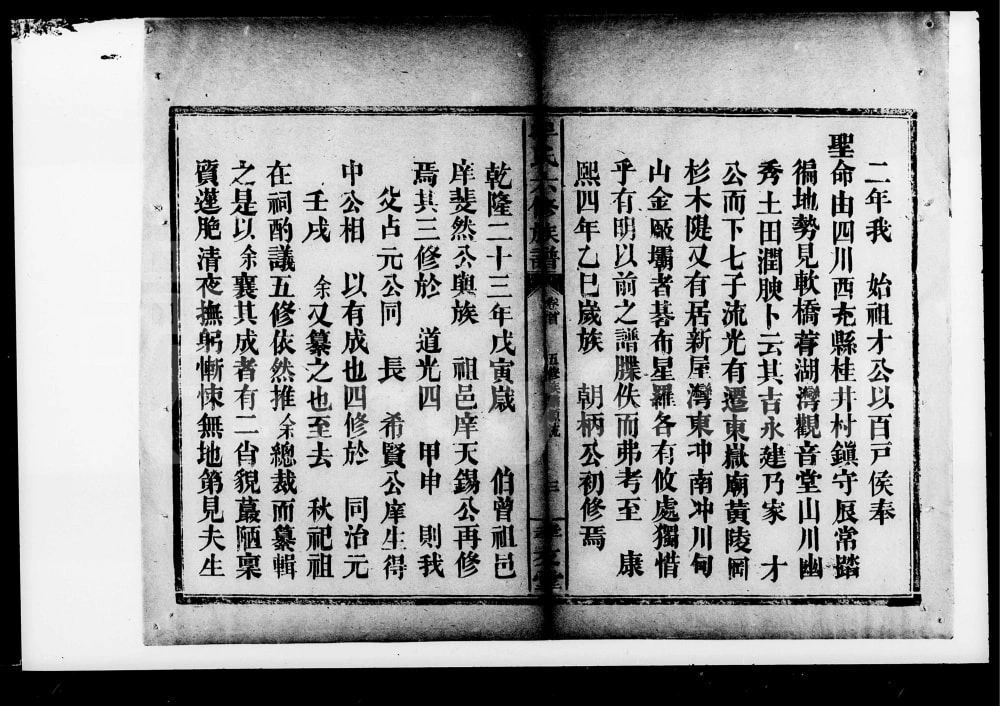 二年我　始祖才公以百戸侯奉
聖命由四川西充縣桂井村鎮守辰常踏
徧地勢見軟橋蓉湖灣觀音堂山川幽
秀土田潤腴卜云其吉永建乃家　才
公而下七子流光有遷東嶽廟黃陵岡
杉木隄又有居新屋灣東冲南冲川甸
山金厰壩者碁布星羅各有攸處獨惜
乎有明以前之譜牒佚而弗考至　康
熙四年乙巳嵗族　朝柄公初修焉
氏六修族譜
卷首
五修
三
乾隆二十三年戊寅嵗　伯曾祖邑
庠斐然公輿族　祖邑庠天錫公再修
焉其三修於　道光四　甲申　則我
父占元公同　長　希賢公庠生得
中公相　以有成也四修於　同治元
壬戌　余又纂之也至去　秋祀祖
在祠酌議五修依然推余總裁而纂輯
之是以余襄其成者有二肯貌蕞陋稟
資蓬脆清夜撫躬慚悚無地第見夫生